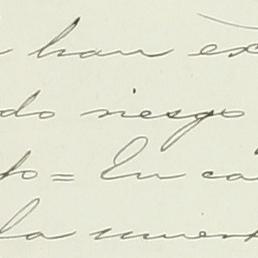 han ex
do riesgo
to = En ca
la muer